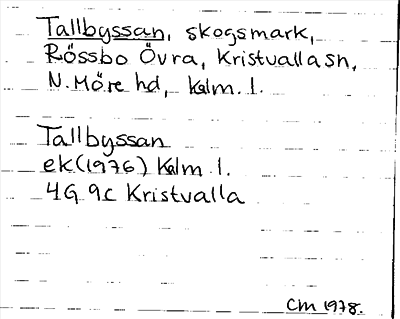 Tallbyssan, skogsmark,
Rössbo Övra, Kristvalla sn,
N. Möre hd, Kalm. l.
Tallbyssan
ek (1976) Kalm l.
4G 9c Kristvalla
CM 1978.